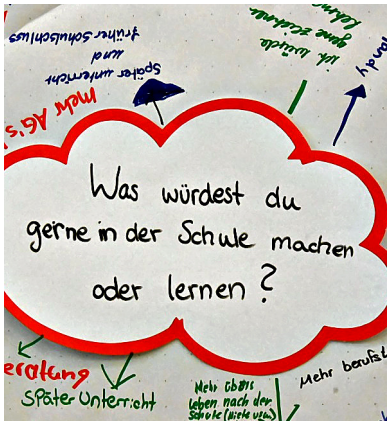 früher Schulschluss
und
Später unterricht
mehr AG's
ich würde
gerne zeichnen
lehrnen
Handy
Was würdest du
gerne in der Schule machen
oder lernen?
eratung
Später Unterricht
Mehr übers
leben nach der
Schule (Miete usw.)
Mehr berufst